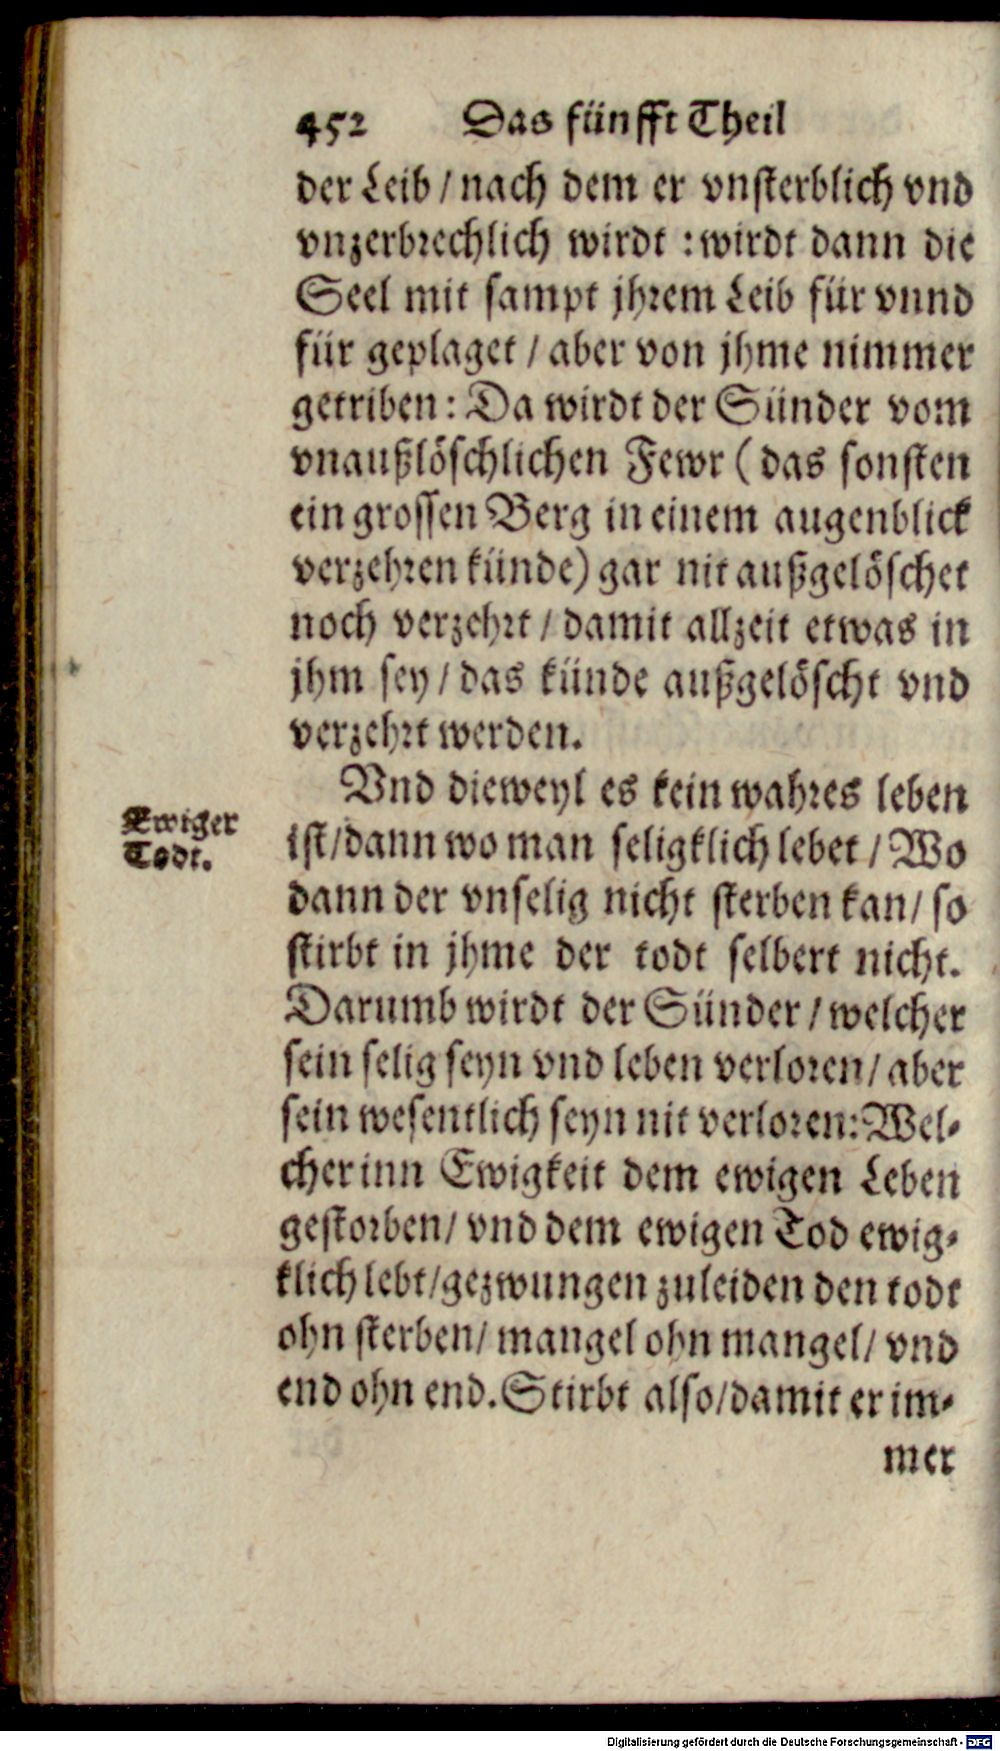 452 Das fünfft Theil
der Leib / nach dem er vnsterblich vnd
vnzerbrechlich wirdt : wirdt dann die
Seel mit sampt jhrem Leib für vnnd
für geplaget / aber von jhme nimmer
getriben: Da wirdt der Sünder vom
vnaußlöschlichen Fewr ( das sonsten
ein grossen Berg in einem augenblick
verzehren künde) gar nit außgelöschet
noch verzehrt / damit allzeit etwas in
jhm sey / das künde außgelöscht vnd
verzehrt werden.
Vnd dieweyl es kein wahres leben
ist/dann wo man seligklich lebet / Wo
dann der vnselig nicht sterben kan/ so
stirbt in jhme der todt selbert nicht.
Darumb wirdt der Sünder / welcher
sein selig seyn vnd leben verloren/ aber
sein wesentlich seyn nit verloren: Wel-
cher inn Ewigkeit dem ewigen Leben
gestorben/ vnd dem ewigen Tod ewig-
klich lebt/gezwungen zuleiden den todt
ohn sterben/ mangel ohn mangel/ vnd
end ohn end. Stirbt also/damit er im-
mer
Ewiger
Todt.
Digitalisierung gefördert durch die Deutsche Forschungsgemeinschaft - DFG